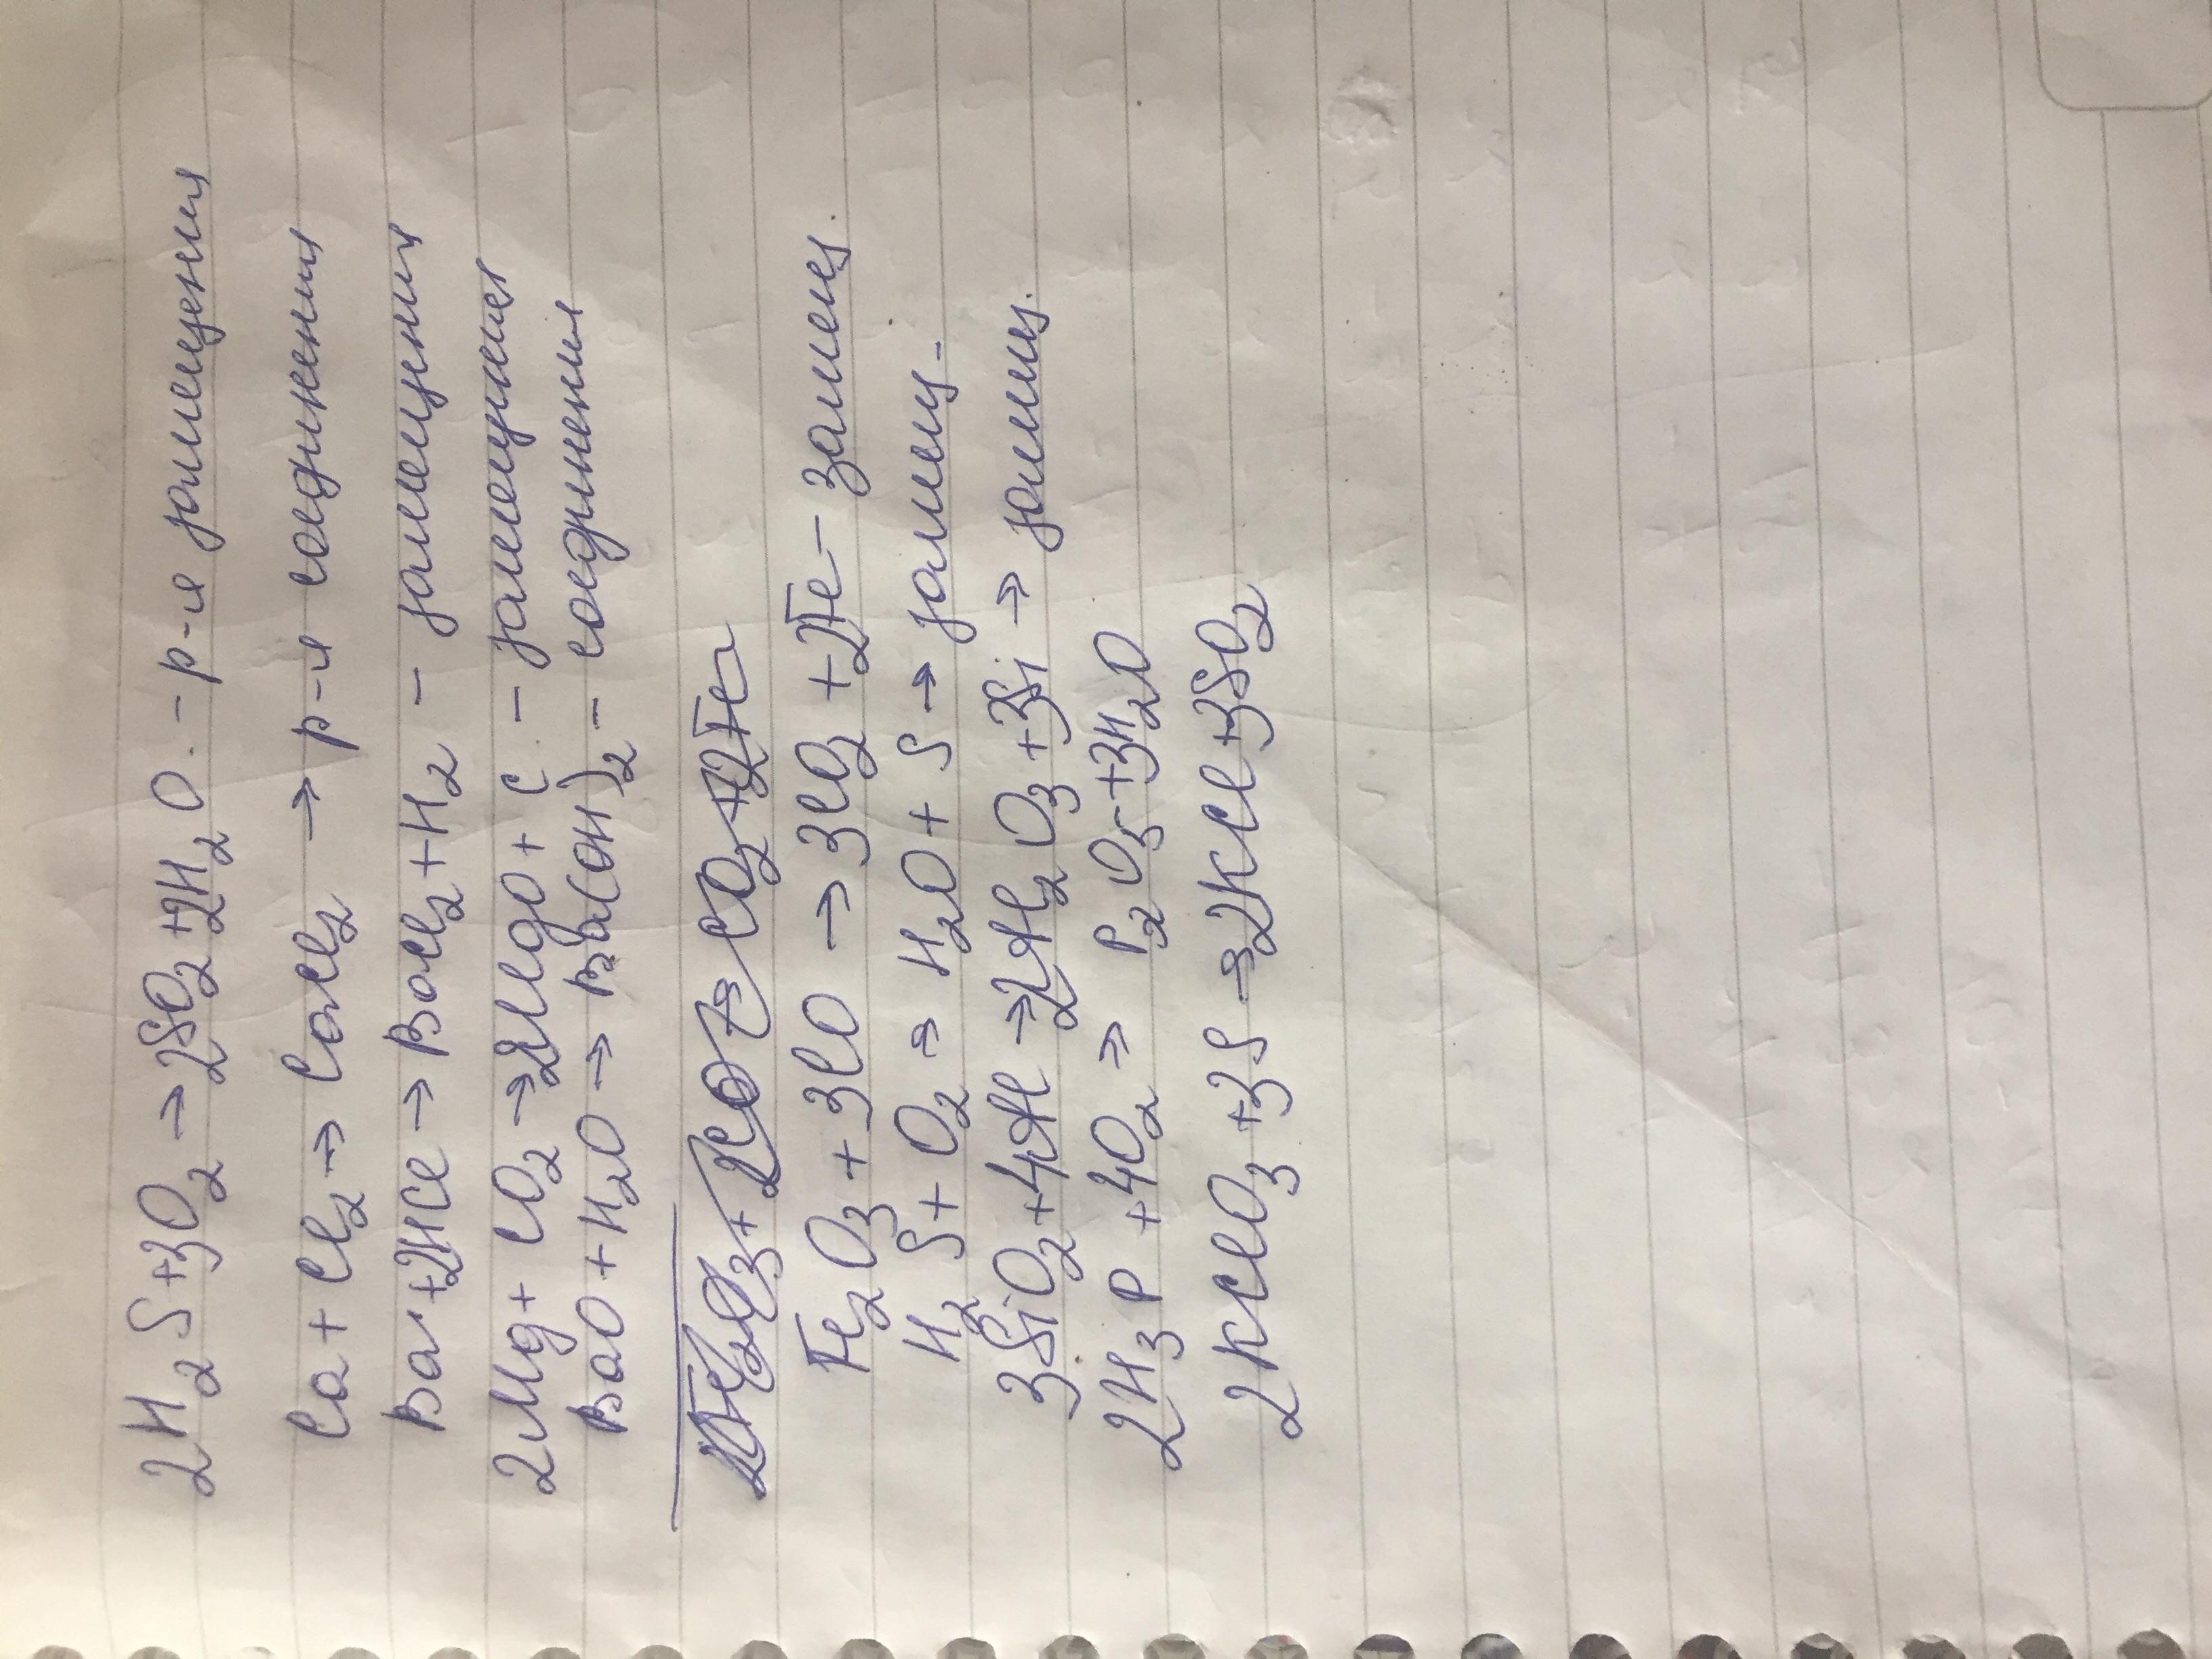 2H₂S+3O₂→2SO₂+2H₂O. - р-я замещения
Ca + Cl₂ → CaCl₂ → р-я соединения
Ba + 2HCl → BaCl₂ + H₂ - замещения
2Mg + CO₂ → 2MgO + C - замещения
BaO + H₂O → Ba(OH)₂ - соединения
Fe₂O₃ + 3CO → 3CO₂ + 2Fe - замещ.
H₂S + O₂ → H₂O + S → замещ.
3SiO₂ + 4Al → 2Al₂O₃ + 3Si → замещ.
2H₃P + 4O₂ → P₂O₅ + 3H₂O
2KClO₃ + 3S → 2KCl + 3SO₂